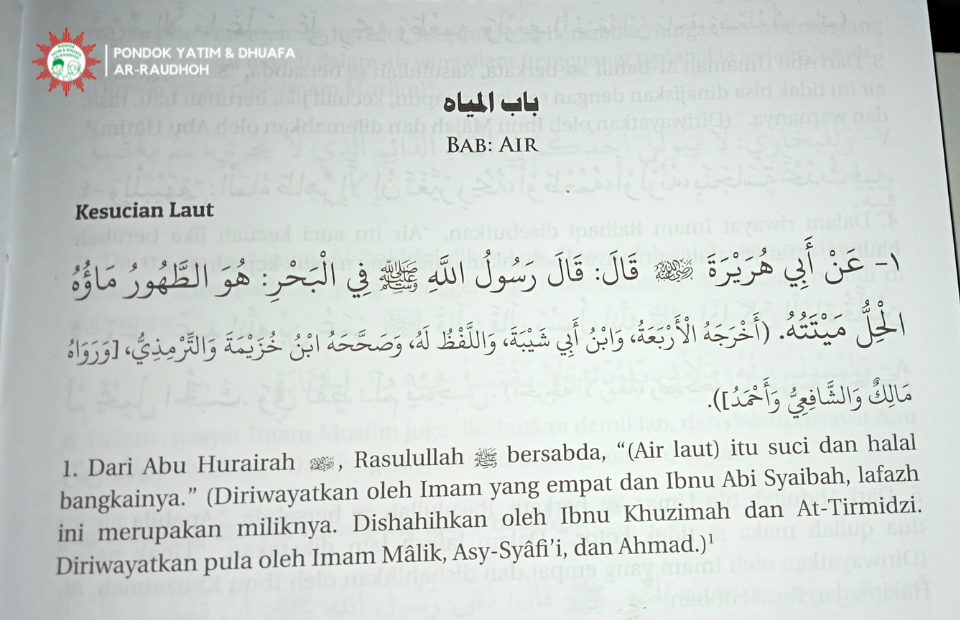 PONDOK YATIM & DHUAFA
AR-RAUDHOH
باب المياه
BAB: AIR
Kesucian Laut
١- عَنْ أَبِي هُرَيْرَةَ ﵁ قَالَ: قَالَ رَسُولُ اللَّهِ ﷺ فِي الْبَحْرِ: هُوَ الطَّهُورُ مَاؤُهُ
الْحِلُّ مَيْتَتُهُ. (أَخْرَجَهُ الْأَرْبَعَةُ، وَابْنُ أَبِي شَيْبَةَ، وَاللَّفْظُ لَهُ، وَصَحَّحَهُ ابْنُ خُزَيْمَةَ وَالتِّرْمِذِيُّ، [وَرَوَاهُ
مَالِكٌ وَالشَّافِعِيُّ وَأَحْمَدُ]).
1. Dari Abu Hurairah ﵁, Rasulullah ﷺ bersabda, “(Air laut) itu suci dan halal
bangkainya.” (Diriwayatkan oleh Imam yang empat dan Ibnu Abi Syaibah, lafazh
ini merupakan miliknya. Dishahihkan oleh Ibnu Khuzimah dan At-Tirmidzi.
Diriwayatkan pula oleh Imam Mâlik, Asy-Syâfi’i, dan Ahmad.)¹